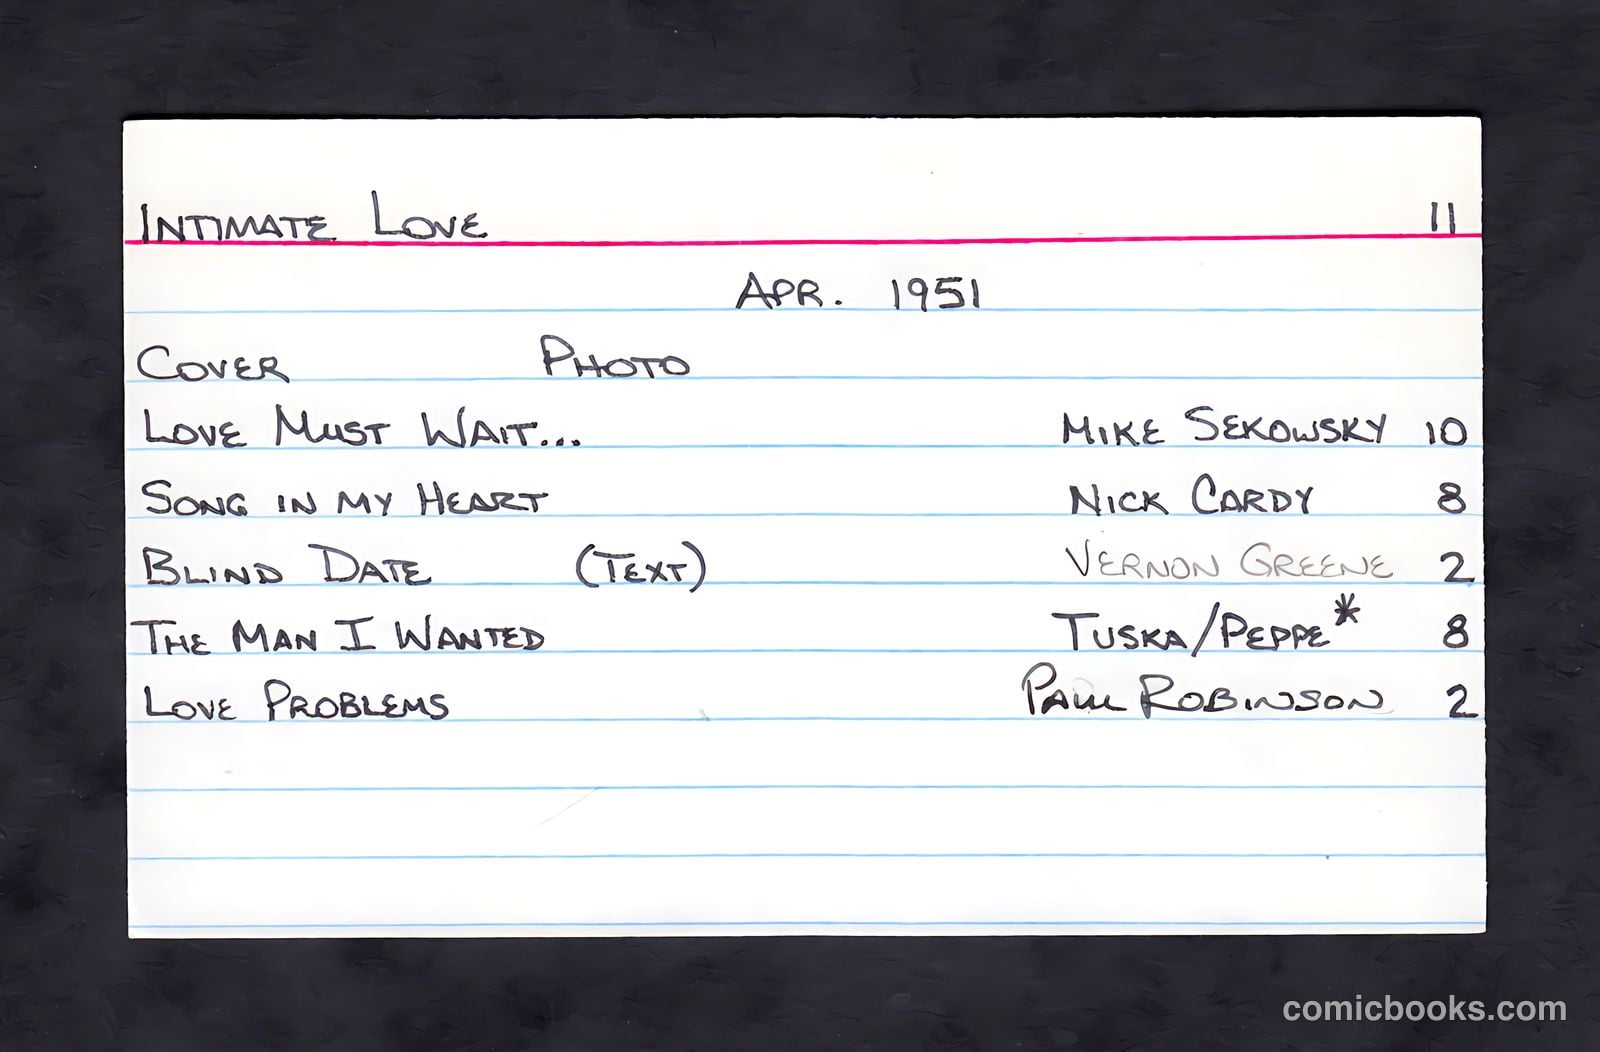 INTIMATE LOVE 11
APR. 1951
COVER PHOTO
LOVE MUST WAIT... MIKE SEKOWSKY 10
SONG IN MY HEART NICK CARDY 8
BLIND DATE (TEXT) VERNON GREENE 2
THE MAN I WANTED TUSKA/PEPPE* 8
LOVE PROBLEMS PAUL ROBINSON 2
comicbooks.com